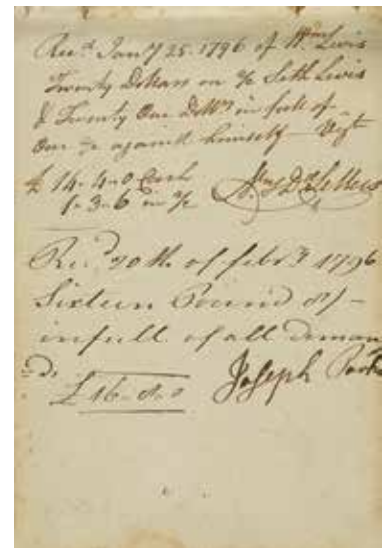 Rec.d Jan.y 25. 1796 of Wm. Lewis
Twenty Dollars on a/c Seth Lewis
& Twenty One Doll.rs in full of
Our a/c against himself
£ 14-4-0 Cash
1-3-6 in a/c
Rec.d 20th. of febr.y 1796
Sixteen Pound 8/-
infull of all deman
ds
£16-8-0 Joseph